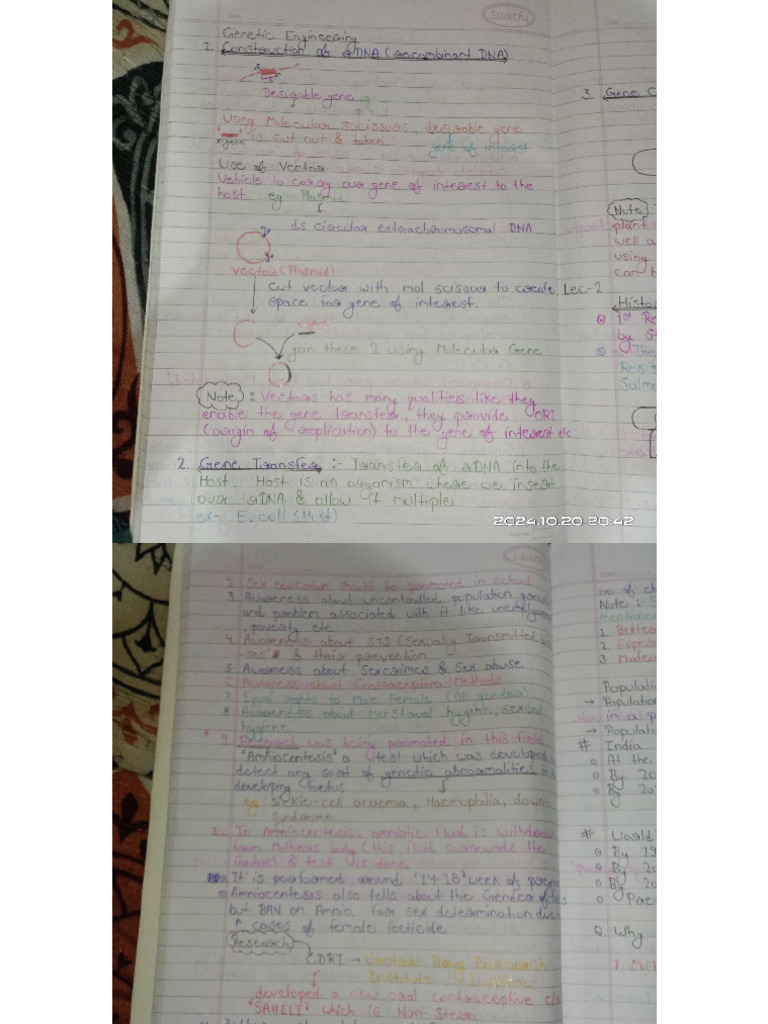 Saathi
Genetic Engineering
1. Construction of rDNA (recombinant DNA)
Desirable gene
Using Molecular scissors, desirable gene
is cut out & taken
gene of interest
Use of Vector
Vehicle to carry our gene of interest to the
host eg Plasmid
ds circular extrachromosomal DNA
Vector (Plasmid)
Cut vector with mol scissor to create
space for gene of interest.
join these 2 using Molecular Gene
Note : Vectors has many qualities like they
enable the gene transfer, they provide ORI
(origin of replication) to the gene of interest etc
2. Gene Transfer :- Transfer of rDNA into the
Host. Host is an organism where we insert
our rDNA & allow it multiple
ex- E.coli (Host)
3. Gene C
Note
plant
well a
using
can b
Lec-2
Histo
1st Re
by S
The
Resis
Salmo
2024.10.20 20:42
Saathi
2. Sex education should be promoted in school
3. Awareness about uncontrolled population
and problem associated with it like
, poverty etc
4. Awareness about STD (Sexually Transmitted
& their prevention
5. Awareness about Sexcrimes & Sex abuse
6. Awareness about Contraceptive Methods
7. Equal rights to Male Female (All genders)
8. Awareness about Menstrual hygiene, sexual
hygiene
9. Research was being promoted in this field
"Amniocentesis" a test which was developed
detect any sort of genetic abnormalities in
developing foetus
eg: Sickle-cell anaemia, Haemophilia, down
syndrome
In Amniocentesis, amniotic fluid is
from Mothers body (this fluid surrounds the
foetus) & test is done
It is performed around '14-18' week of
Amniocentesis also tells about the Gender of
but BAN on Amnio. for sex determination due
↑ cases of female foeticide
Research
CDRI → Central Drug Research
Institute
developed a new oral contraceptive
"SAHELI" which is Non-
no. of ch
Note :-
mention
1. Bette
2.
3.
Populati
→ Population
in a p
→ Populati
# India
At the
By 20
By 20
# World
By 19
By 20
By 20
Q. Why